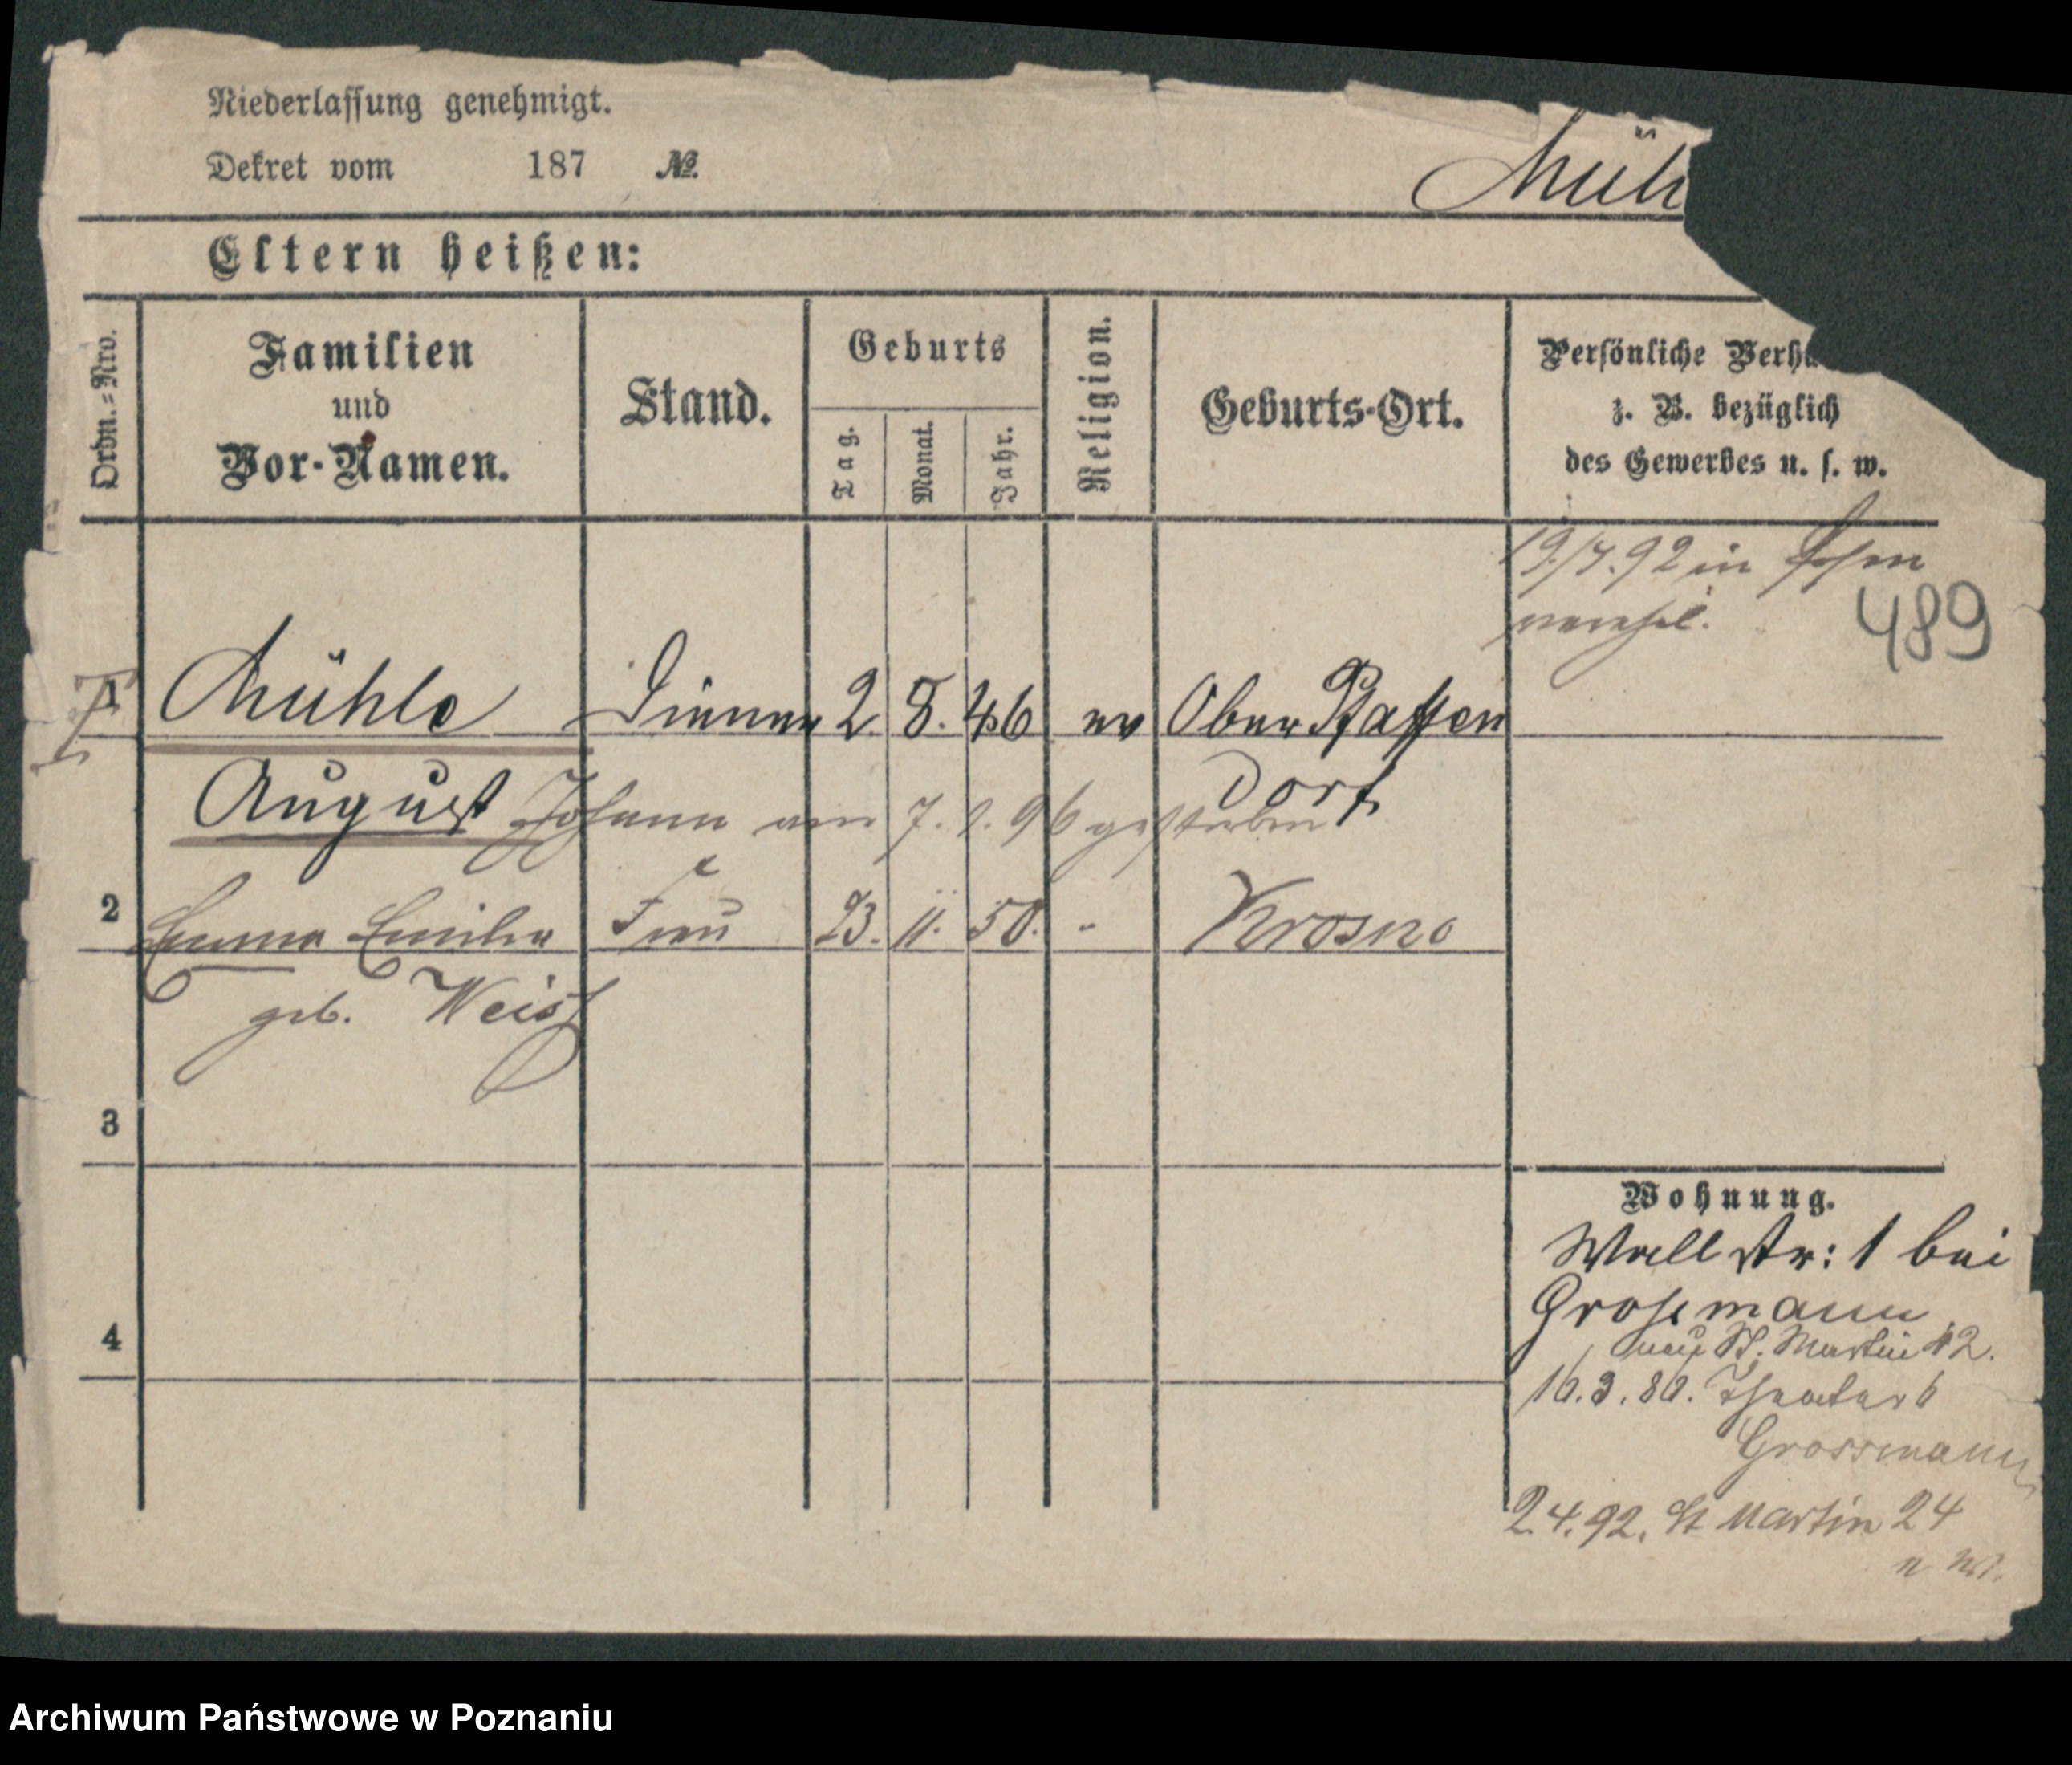 Niederlassung genehmigt.
Dekret vom 187 №.
Müh
Eltern heißen:
Ordn.=Nro.
Familien
und
Vor-Namen.
Stand.
Geburts
Tag.
Monat.
Jahr.
Religion.
Geburts-Ort.
Persönliche Verhä
z. B. bezüglich
des Gewerbes u. s. w.
19./4.92 in Posen
verehel.
489
1 Mühle Diener 2 8. 46 ev Ober Pfaffen
August dorf
Johann am 7. 1. 96 gestorben
2 Emma Emilie Frau 23. 11. 50. " Krosno
geb. Weiss
3
4
Wohnung.
Wall str: 1 bei
Grossmann
St. Martin 42.
16.3.86. Theater 6
Grossmann
2.4.92. St Martin 24
Archiwum Państwowe w Poznaniu